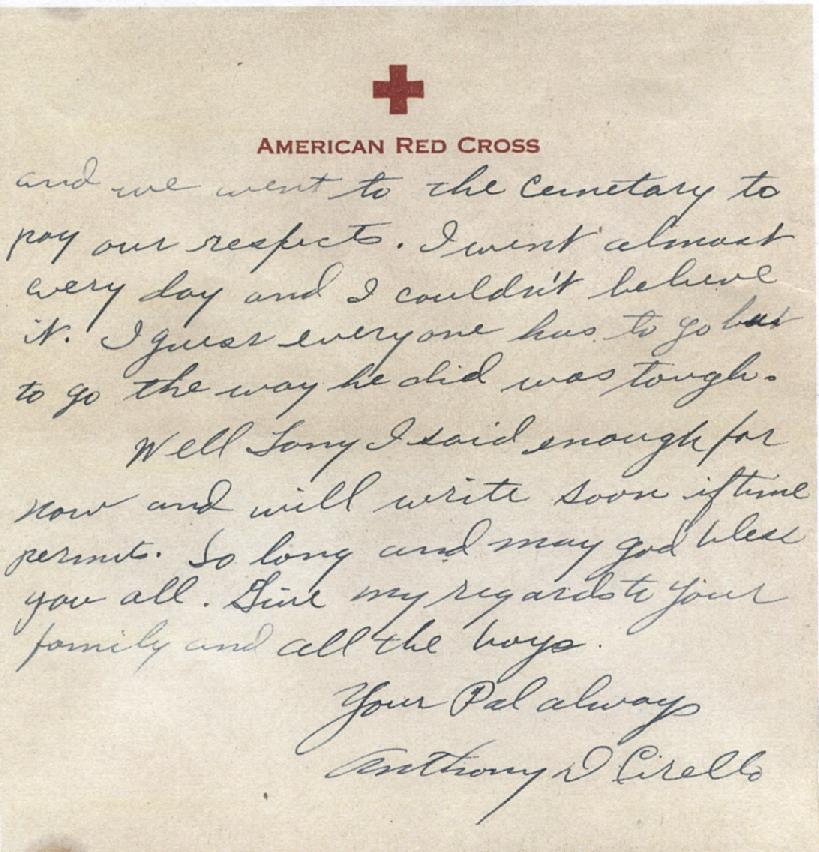 AMERICAN RED CROSS
and we went to the cemetary to
pay our respects. I went almost
every day and I couldn't believe
it. I guess everyone has to go but
to go the way he did was tough.
Well Tony I said enough for
now and will write soon if time
permit. So long and may god bless
you all. Give my regards to your
family and all the boys.
Your Pal always
Anthony D Cirello